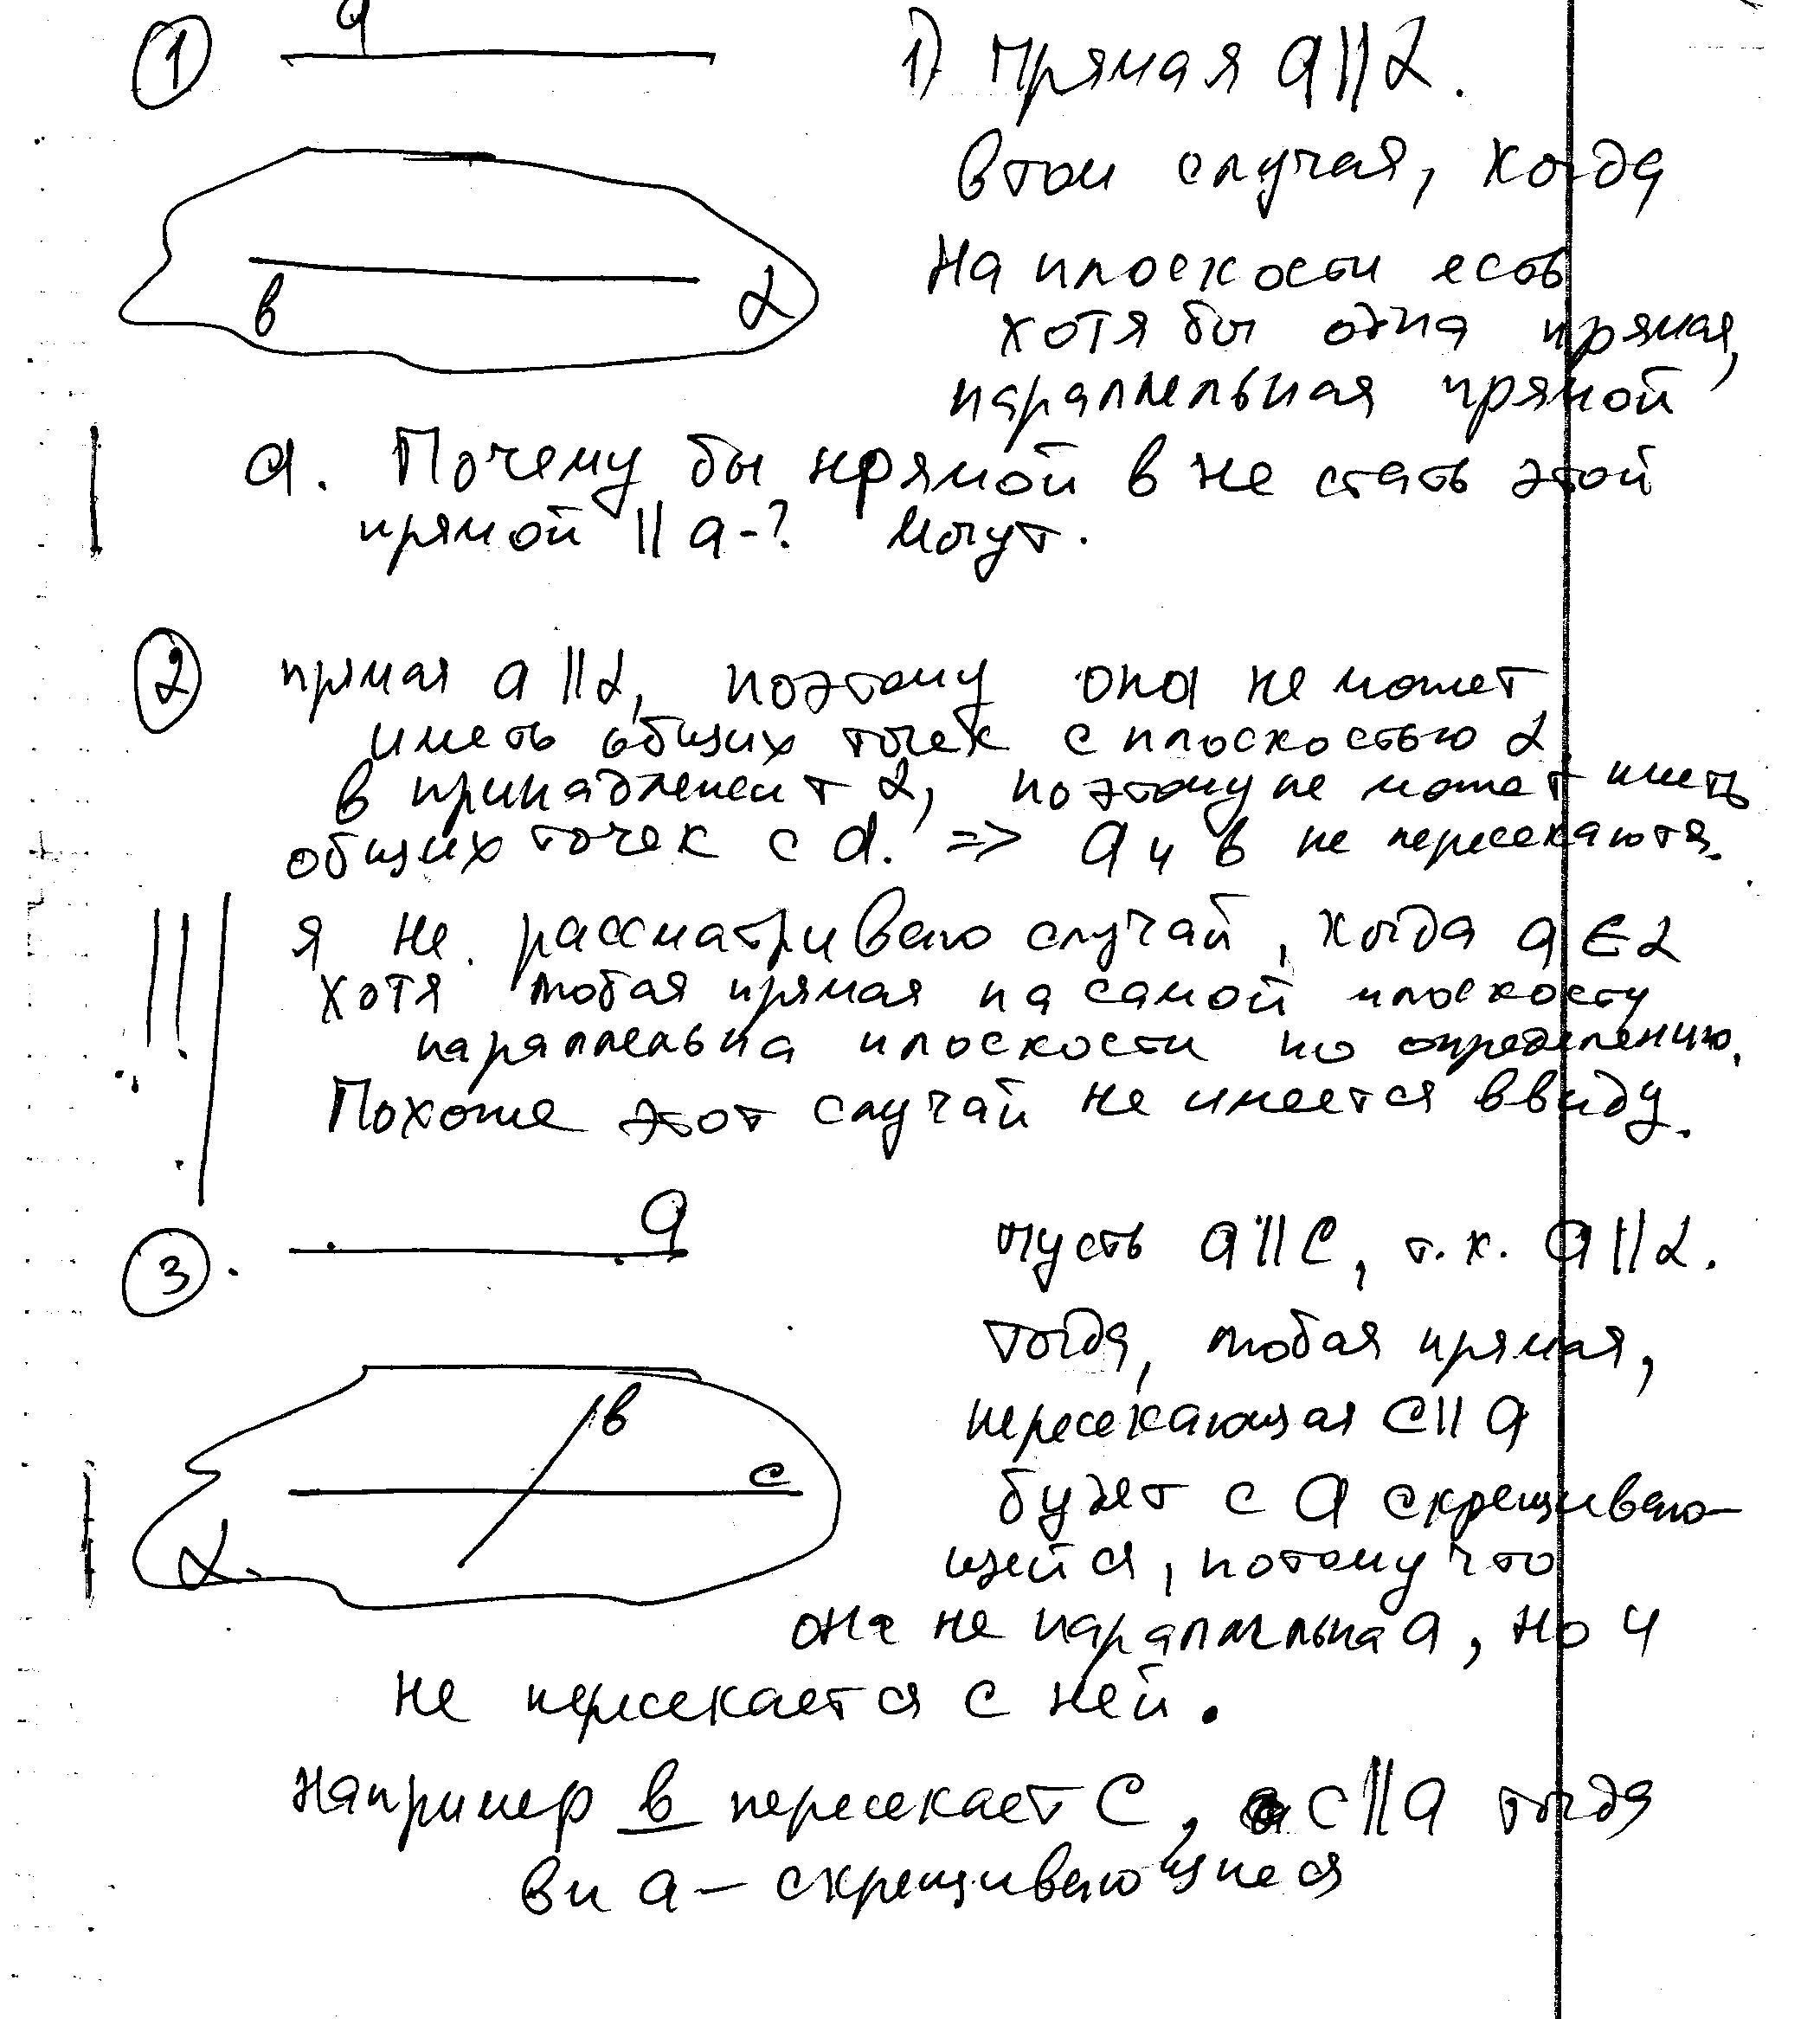 ① a
1) Прямая a||α.
в том случая, когда
на плоскости есть
в α
хотя бы одна прямая,
параллельная прямой
a. Почему бы прямой в не стать этой
прямой || a-? Могут.
② прямая a||α, поэтому она не может
иметь общих точек с плоскостью α
в принадлежит α, поэтому не может иметь
общих точек с a. => a и в не пересекаются.
я не рассматриваю случай, когда a ∈ α
хотя любая прямая на самой плоскости
параллельна плоскости по определению.
Похоже этот случай не имеется ввиду.
③ a
пусть a||c, т.к. a||α.
тогда, любая прямая,
в
пересекающая c||a
c
будет с a скрещиваю-
α
щейся, потому что
она не параллельна a, но и
не пересекается с ней.
например в пересекает c, а c||a тогда
в и a – скрещивающиеся